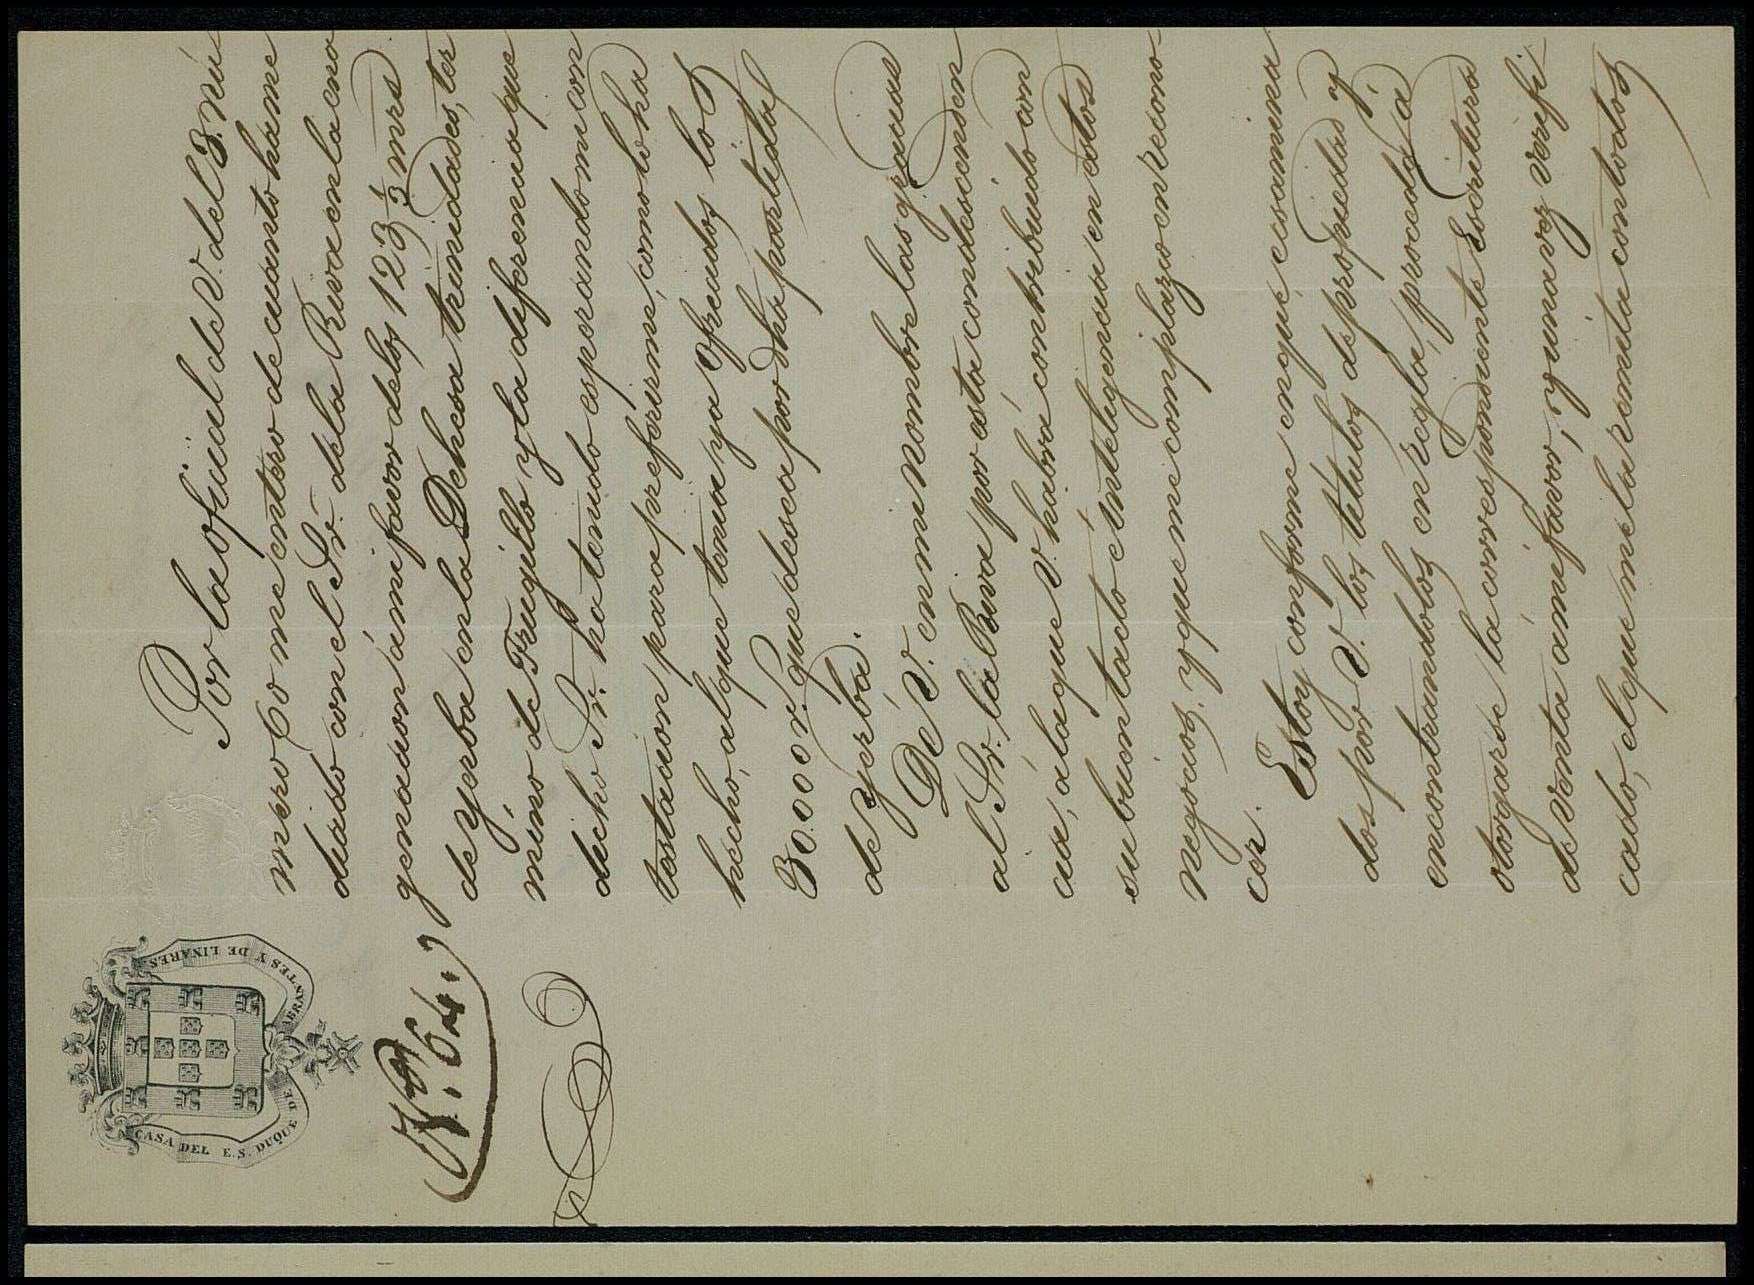 CASA DEL E.S. DUQUE DE ABRANTES Y DE LINARES
Nº. 64.
Por la oficial de V. del 3. nú
mero 60 me entero de cuanto ha me
diado con el Sr. de la Riva en la ena
genacion á mi favor de los 123 1/3 mrs
de yerba en la Dehesa trinidades, ter
mino de Trugillo y la diferencia que
dicho Sr. ha tenido esperando mi con
testacion para preferirme, como lo ha
hecho, al que tenia ya ofrecidos los
30.000 rs. que desea por dha partida
de yerba.
Dé V. en mi nombre las gracias
al Sr. la Riva por esta condescenden
cia, a la que V. habrá contribuido con
su buen tacto é inteligencia en estos
negocios. y que me complazco en recono-
cer.
Estoy conforme en que, ecsamina
dos por V. los titulos de propiedad y
encontrandolos en regla, proceda á
otorgarse la correspondiente Escritura
de venta á mi favor, y una vez verifi
cado, el que me la remita con todos